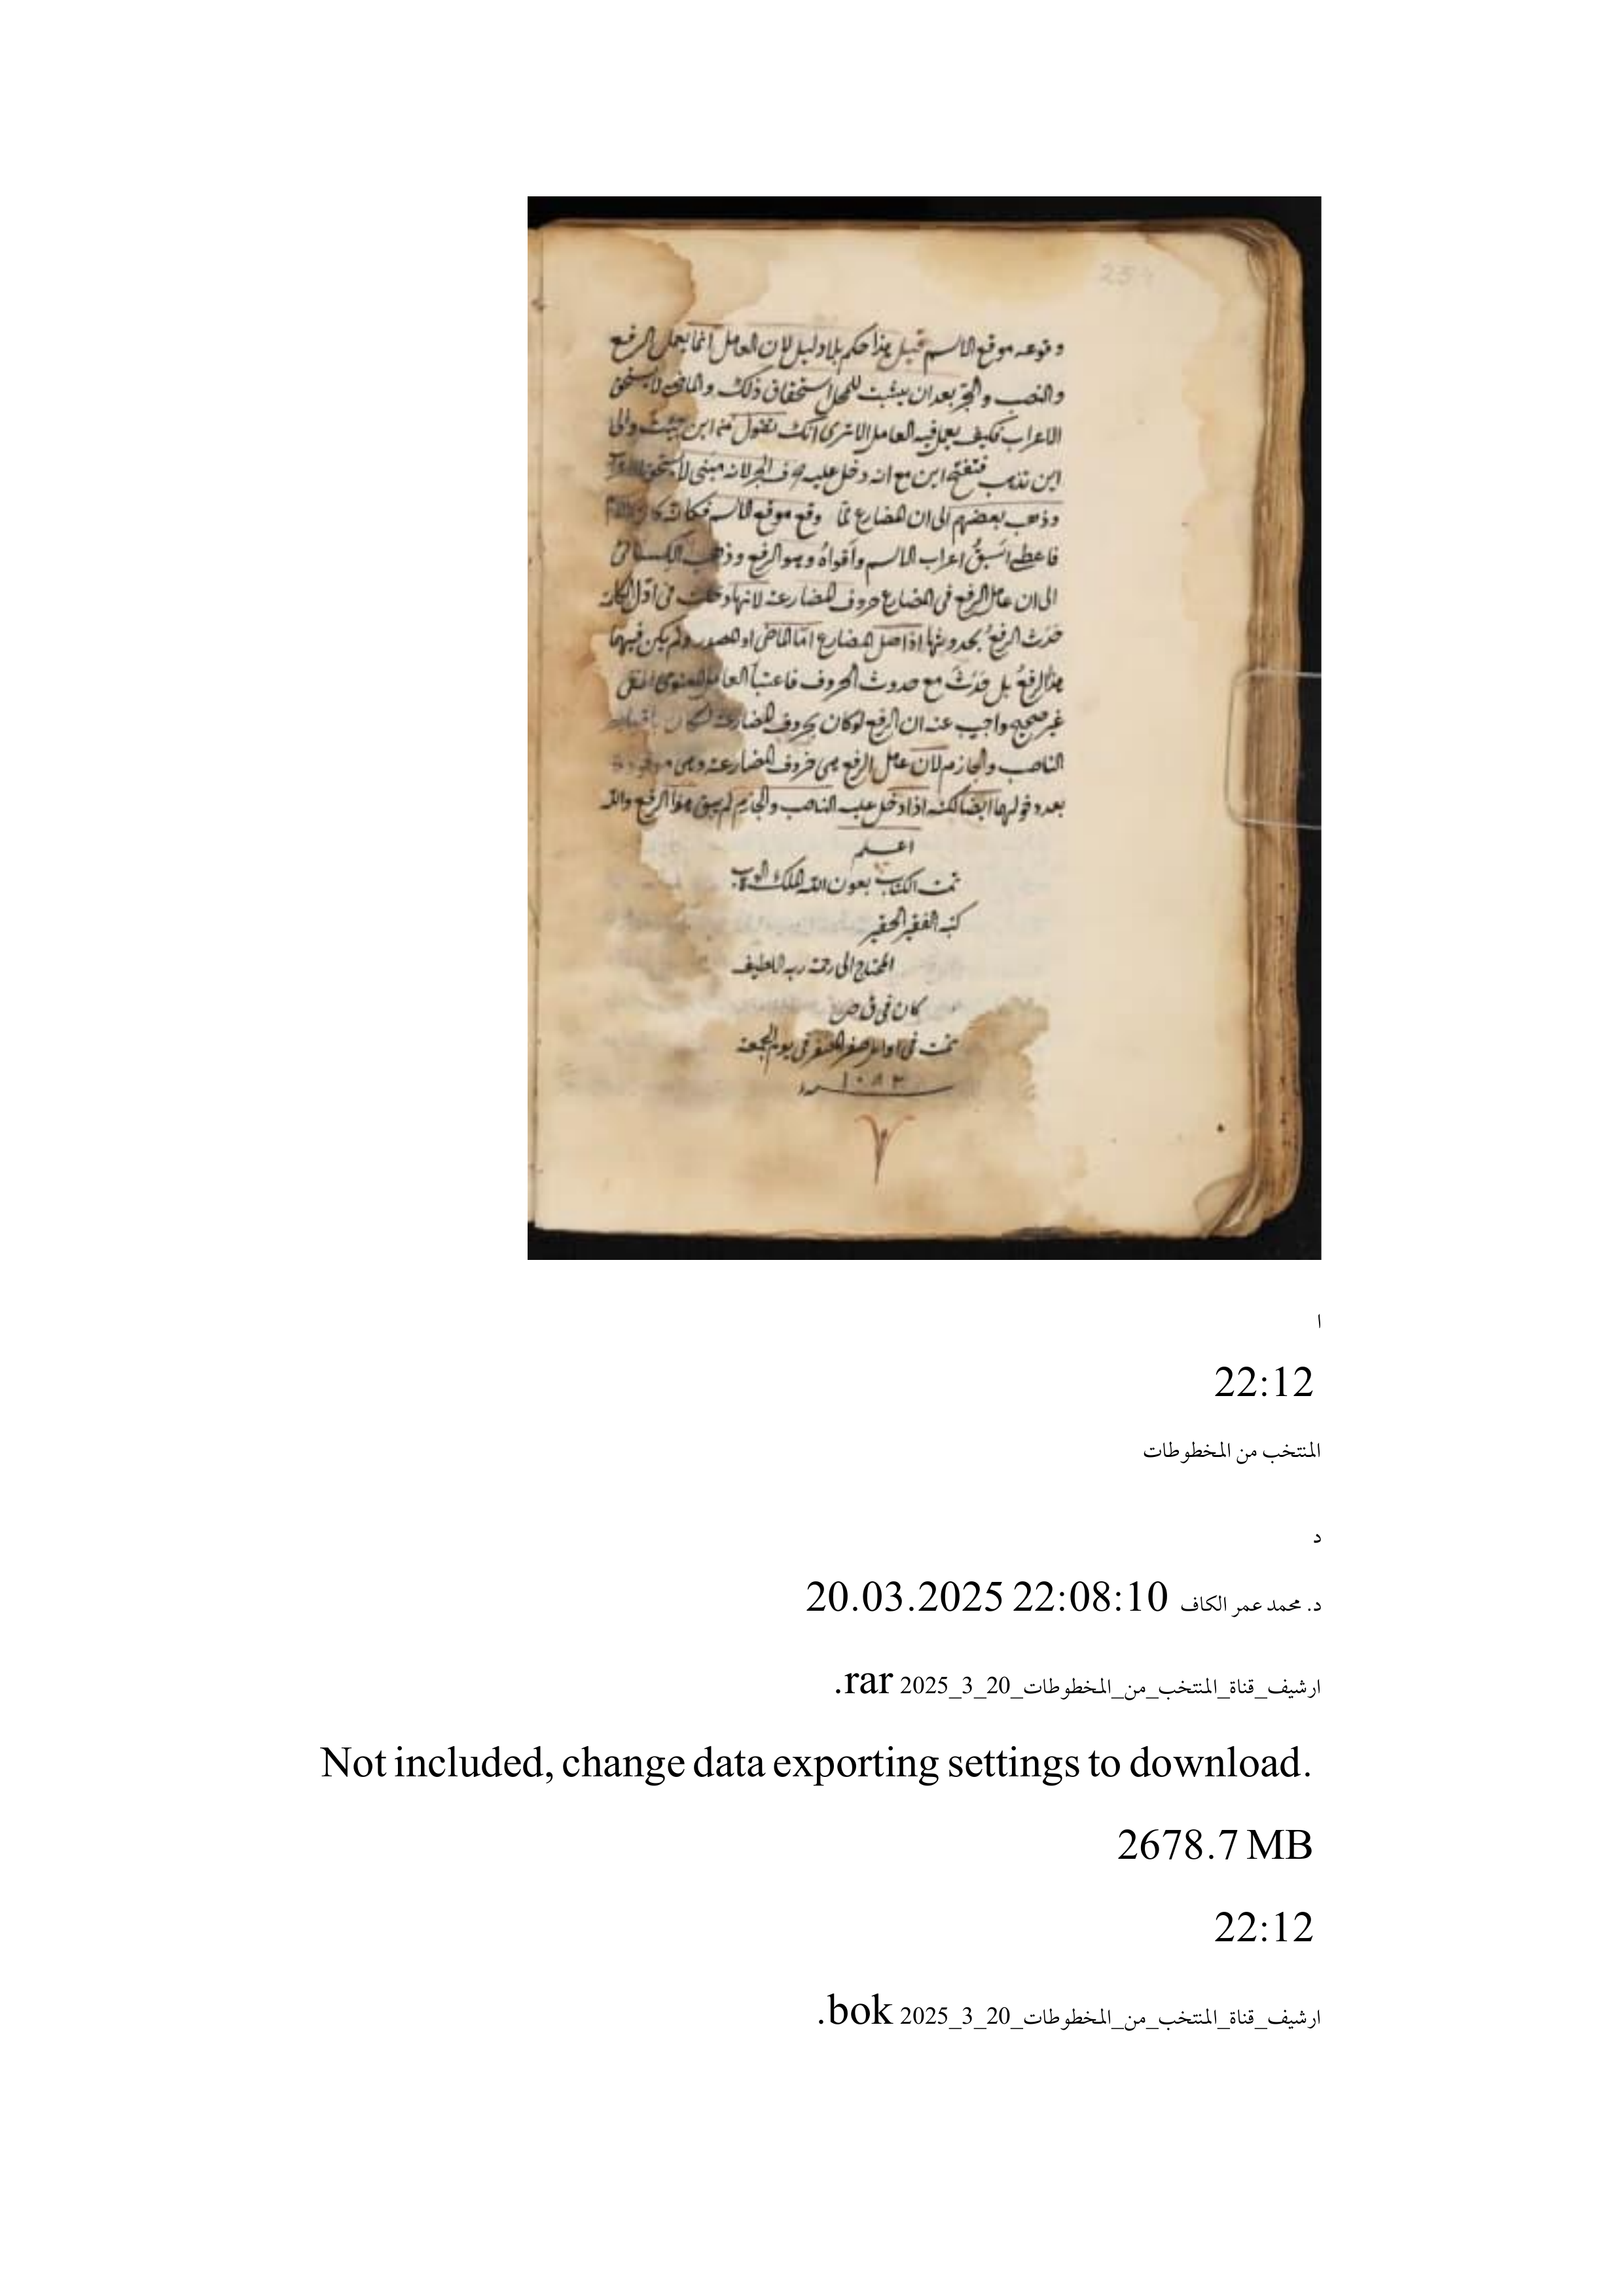 254
وقوعه موقع الاسم قيل هذا حكم بلا دليل لان العامل انما يعمل الرفع
والنصب والجر بعد ان يثبت للمحل استحقاق ذلك والماضى لا يستحق
الاعراب فكيف يعمل فيه العامل الا ترى انك تقول من اين جئت والى
اين تذهب فتفتح اين مع انه دخل عليه حرف الجر لانه مبنى لا يستحق
وذهب بعضهم الى ان المضارع لما وقع موقع الاسم فكانه كان
فاعطى اسبق اعراب الاسم واقواه وهو الرفع وذهب الكسائى
الى ان عامل الرفع فى المضارع حروف المضارعة لانها دخلت فى اول الكلمة
حدث الرفع بحدوثها اذ اصل المضارع اما الماضى او المصدر ولم يكن فيهما
هذا الرفع بل حدث مع حدوث الحروف العامل المعنوى
غير صحيح واجيب عنه ان الرفع لو كان بحروف المضارعة لكان
الناصب والجازم لان عامل الرفع هى حروف المضارعة وهى موجودة
بعد دخولهما ايضا لكنه اذا دخل عليه الناصب والجازم لم يبق هذا الرفع والله
اعلم
تمت الكتاب بعون الله الملك الوهاب
كتبه الفقير الحقير
المحتاج الى رحمة ربه اللطيف
كان فى
تمت فى اوايل صفر المظفر فى يوم الجمعة
١٠٨٣ سنه
ا
22:12
المنتخب من المخطوطات
د
د. محمد عمر الكاف 20.03.2025 22:08:10
ارشيف_قناة_المنتخب_من_المخطوطات_20_3_2025 .rar
Not included, change data exporting settings to download.
2678.7 MB
22:12
ارشيف_قناة_المنتخب_من_المخطوطات_20_3_2025 .bok